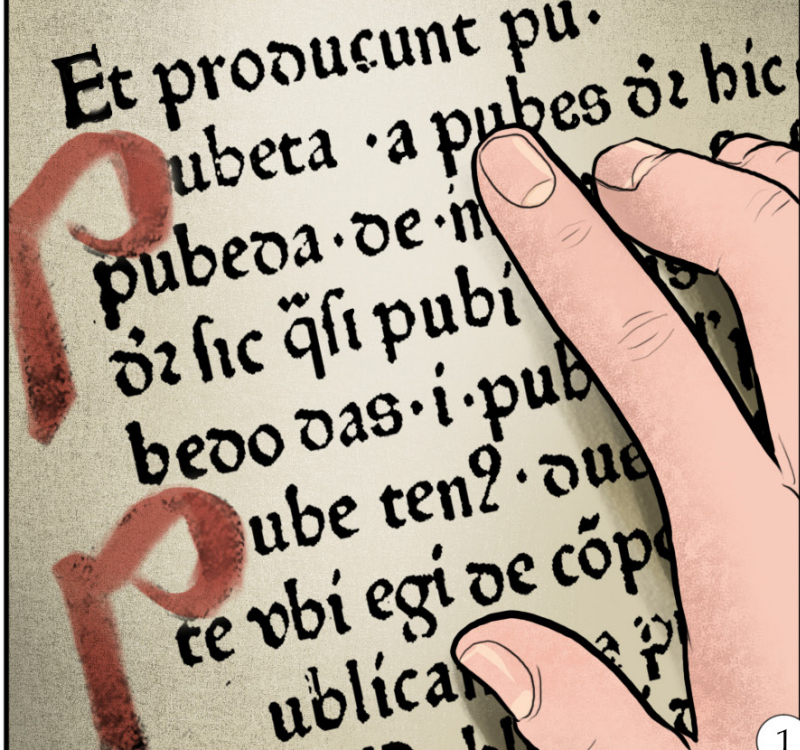 Et producunt pu.
Pubeta ·a pubes dr̉ hic
pubeda·de·m
dr̉ sic q̈si pubi
bedo das·i·pub
Pube tenꝰ·due
te vbi egi de cōpo
ublican
1